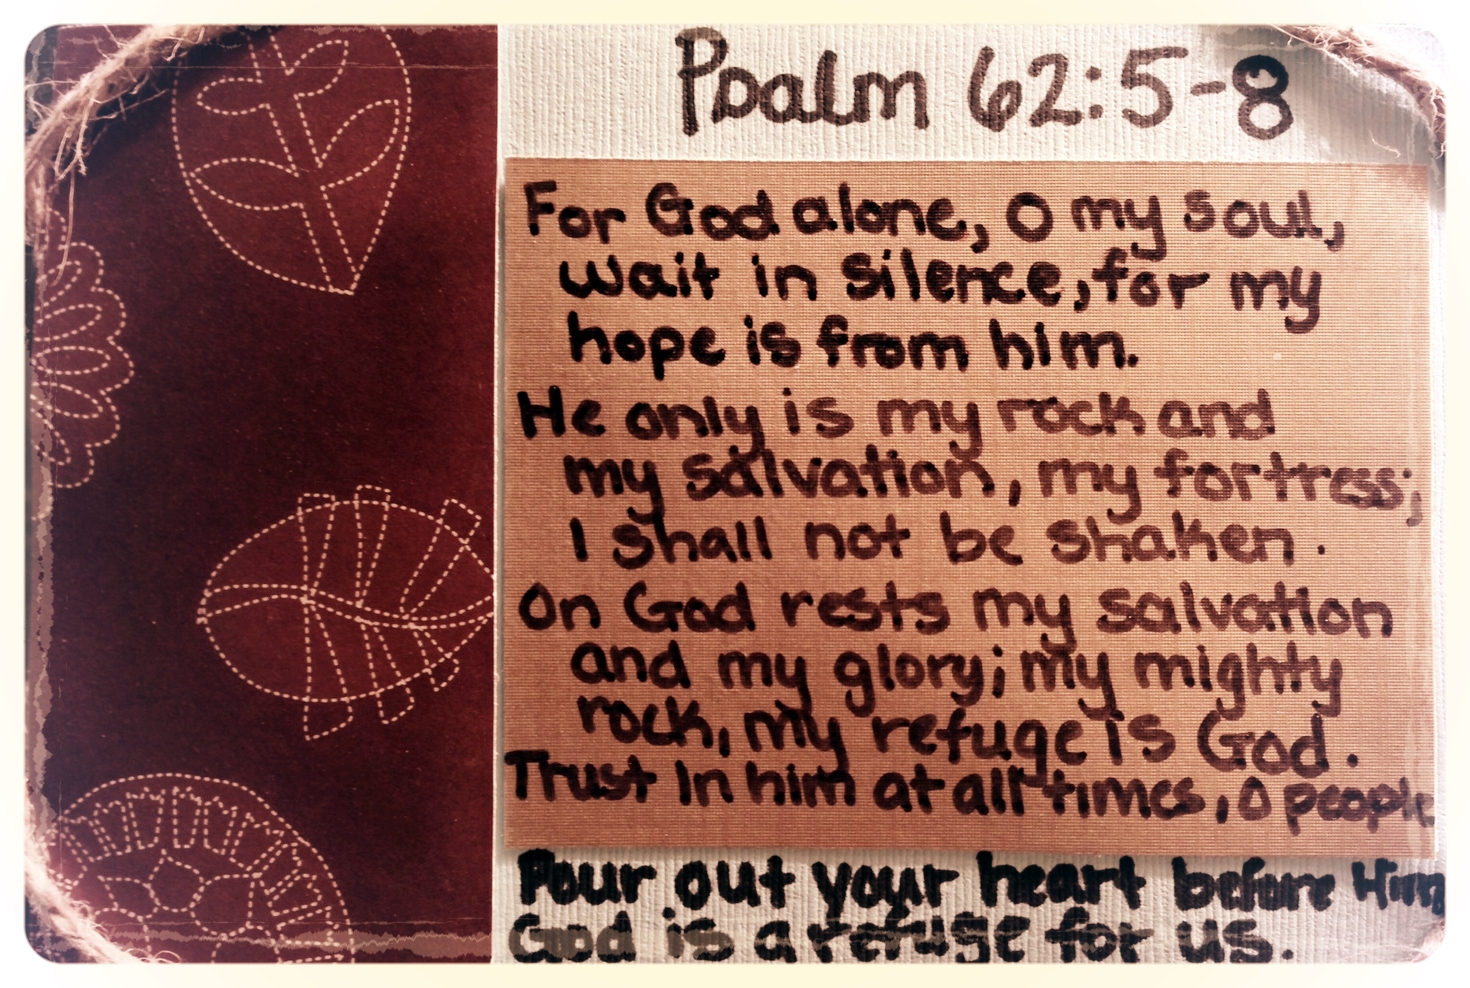 Psalm 62:5-8
For God alone, O my soul,
wait in silence, for my
hope is from him.
He only is my rock and
my salvation, my fortress;
I shall not be shaken.
On God rests my salvation
and my glory; my mighty
rock, my refuge is God.
Trust in him at all times, O people
Pour out your heart before Him
God is a refuge for us.